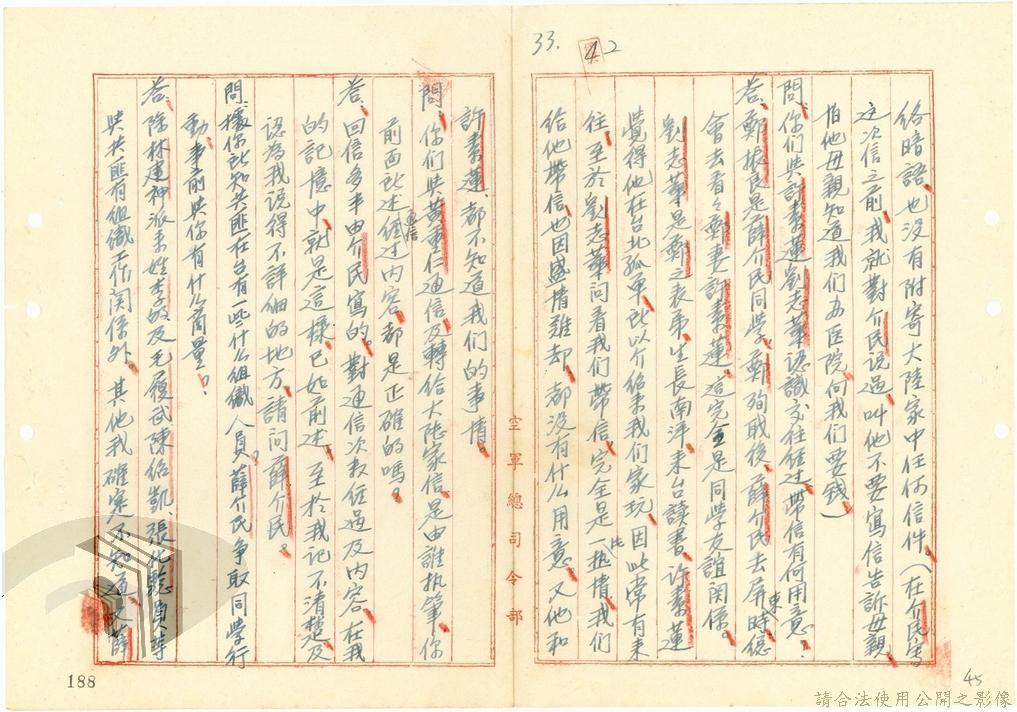 33. 42
絡暗語、也没有附寄大陸家中任何信件。(在介民写
这次信之前、我就對介民説過、叫他不要寫信告訴母親、
怕他母親知道我们办医院、向我们要錢)
問、你们與許素蓮劉志華認識交往経过、帶信有何用意?
荅、鄭振良是薛介民同学、鄭殉戕後、薛介民去屏東時總
會去看々鄭妻許素蓮。這完全是同学友誼関係。
劉志華是鄭之表弟、生長南洋、来台讀書、許素蓮
覺得他在台北孤单、所以介紹来我们家玩、因此常有来
往、至於劉志華问看我们帶信、完全是一片热情、我们
給他帶信、也因盛情难却、都没有什么用意、又他和
許素蓮、都不知道我们的事情。
問、你们與黄重仁通信、及轉给大陸家信、是由誰执筆、你
前面所述通信經过内容、都是正確的嗎。
荅、回信多半由介民寫的、對通信次数経過及内容、在我
的記憶中、就是這樣、已如前述、至於我记不清楚及
認為我説得不詳细的地方、請问薛介民。
問、據你所知共匪在台有一些什么組織人員、薛介民争取同学行
動、事前與你有什么商量。
荅、除林建神派来姓李的及毛履武陳紹凱、張化懿貞等
與共匪有組織工作関係外、其他我確实不知道、又薛
空軍總司令部
188
45
請合法使用公開之影像